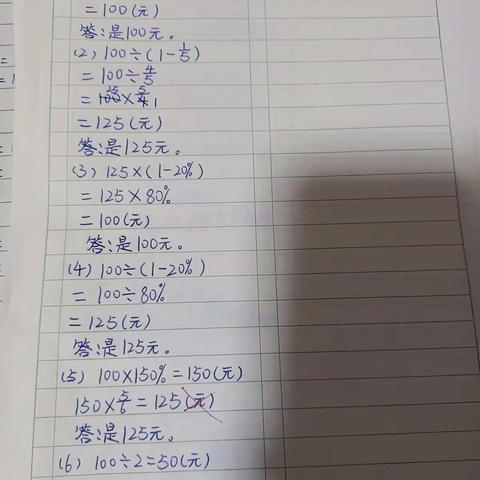 =100(元)
答:是100元。
(2) 100÷(1-1/5)
=100÷4/5
=100×5/4
=125(元)
答:是125元。
(3) 125×(1-20%)
=125×80%
=100(元)
答:是100元。
(4) 100÷(1-20%)
=100÷80%
=125(元)
答:是125元。
(5) 100×150%=150(元)
150×5/6=125(元)
答:是125元。
(6) 100÷2=50(元)